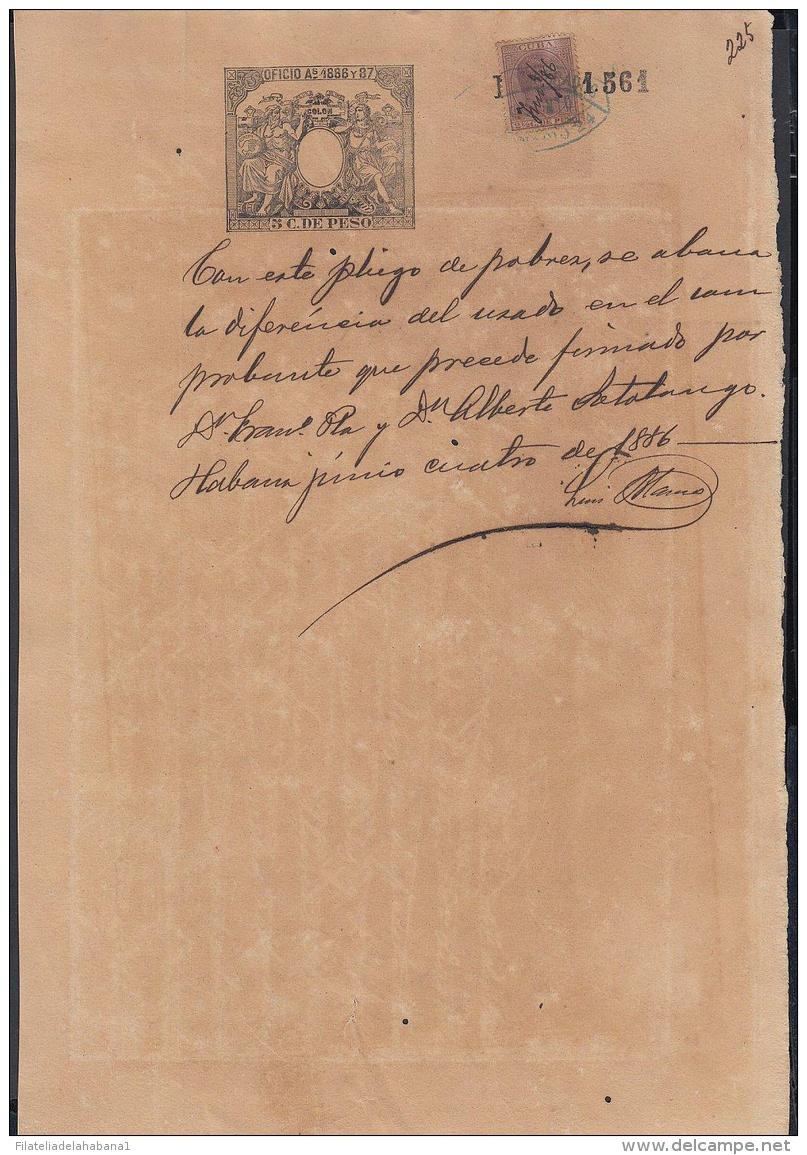 225
OFICIO Aº 1886 Y 87.
COLON
5 C. DE PESO
CUBA
1.561
Con este pliego de pobres, se abona
la diferéncia del usado en el com
probante que precede firmado por
Dn. Franco. Pla y Dn. Alberto Sotolongo.
Habana júnio cuatro de 1886
Luis
Filateliadelahabana1
www.delcampe.net